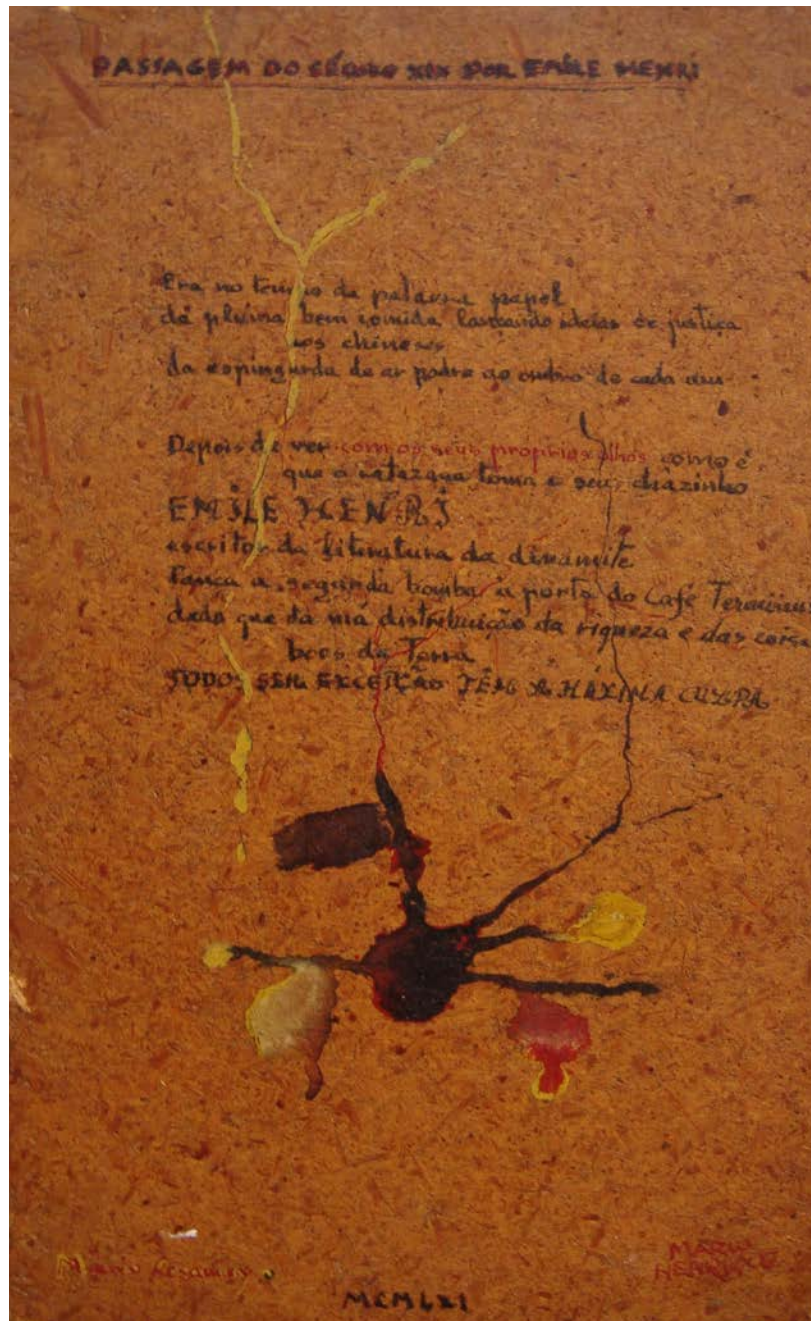 PASSAGEM DO SÉCULO XIX POR EMÍLE HENRI
Era no tempo da palavra papel
da pluma bem comida lançando ideias de justiça
aos chineses
da espingarda de ar podre ao ombro de cada um
Depois de ver com os seus proprios olhos como é
que a ratazana toma o seu chàzinho
EMÍLE HENRÍ
escritor da literatura da dinamite
lança a segunda bomba à porta do Café Terminus
dado que da má distribuição da riqueza e das coisas
boas da Terra
TODOS SEM EXCEPÇÃO TÊM A MÁXIMA CULPA
Mario Cesariny
MARIO
HENRIQUE
MCMLXI